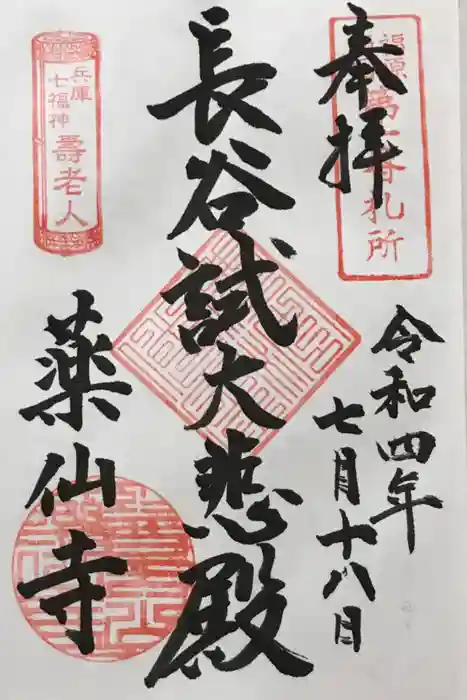 奉拝
福原第一番札所
令和四年
七月十八日
長谷試大悲殿
兵庫
七福神
壽老人
薬仙寺